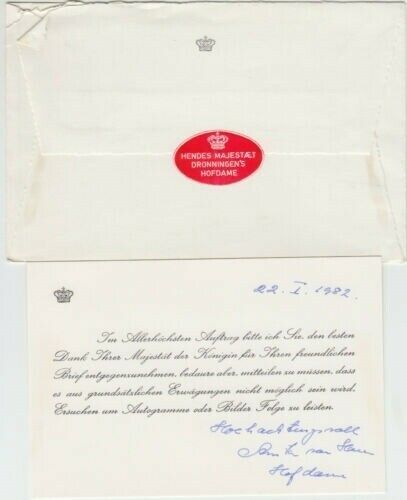 HENDES MAJESTÆT
DRONNINGEN'S
HOFDAME
22. I. 1982.
Im Allerhöchsten Auftrag bitte ich Sie, den besten
Dank Ihrer Majestät der Königin für Ihren freundlichen
Brief entgegenzunehmen, bedaure aber, mitteilen zu müssen, dass
es aus grundsätzlichen Erwägungen nicht möglich sein wird,
Ersuchen um Autogramme oder Bilder Folge zu leisten.
Hochachtungsvoll
Hofdame